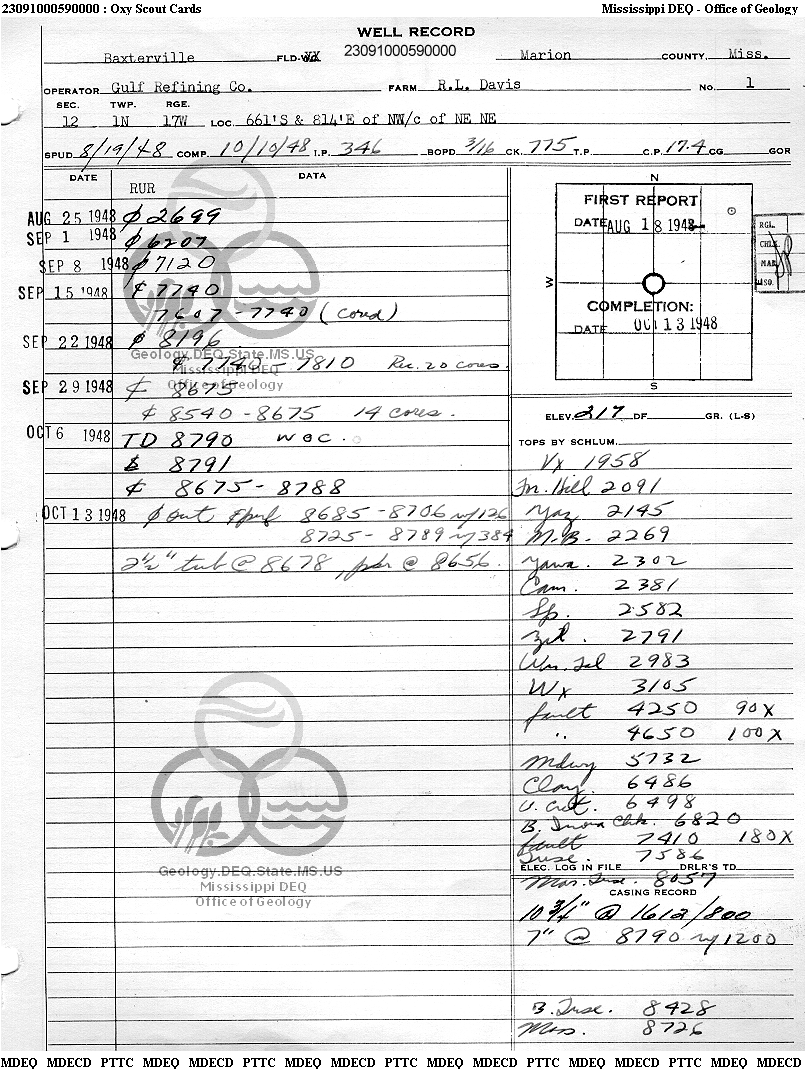 23091000590000 : Oxy Scout Cards Mississippi DEQ - Office of Geology
WELL RECORD
Baxterville FLD-W XX 23091000590000 Marion COUNTY, Miss.
OPERATOR Gulf Refining Co. FARM R.L. Davis NO. 1
SEC. TWP. RGE.
12 1N 17W LOC. 661'S & 814'E of NW/c of NE NE
SPUD 8/19/48 COMP. 10/10/48 I.P. 346 BOPD 3/16 CK. 775 T.P. C.P. 17.4 CG GOR
DATE DATA
RUR
AUG 25 1948 ₵ 2699
SEP 1 1948 ₵ 6207
SEP 8 1948 ₵ 7120
SEP 15 1948 ₵ 7740
7607 - 7740 (cored)
SEP 22 1948 ₵ 8196
₵ 7740 - 7810 Rec. 20 cores.
SEP 29 1948 ₵ 8675
₵ 8540 - 8675 14 cores.
OCT 6 1948 TD 8790 WOC.
8791
₵ 8675 - 8788
OCT 13 1948 ₵ out & perf 8685 - 8706 w/126
8725 - 8789 w/384
2 1/2" tub @ 8678, pkr @ 8656.
N
FIRST REPORT
DATE AUG 18 1948
W
COMPLETION:
DATE OCT 13 1948
S
RGL.
CHK.
MAR.
MISO.
ELEV. 217 DF GR. (L-S)
TOPS BY SCHLUM.
Vx 1958
Fn. Hill 2091
Yaz 2145
M.B. 2269
Yawa. 2302
Cam. 2381
Sp. 2582
Zil. 2791
Wm. Tal 2983
Wx 3105
fault 4250 90X
" 4650 100X
Mdwy 5732
Clay. 6486
U. Cret. 6498
B. Inova Chk. 6820
fault 7410 180X
Tusc. 7586
ELEC. LOG IN FILE DRLR'S TD
Mar. Tusc. 8057
CASING RECORD
10 3/4" @ 1612/800
7" @ 8790 w/1200
B. Tusc. 8428
Mass. 8726
Geology.DEQ.State.MS.US
Mississippi DEQ
Office of Geology
Geology.DEQ.State.MS.US
Mississippi DEQ
Office of Geology
MDEQ MDECD PTTC MDEQ MDECD PTTC MDEQ MDECD PTTC MDEQ MDECD PTTC MDEQ MDECD PTTC MDEQ MDECD